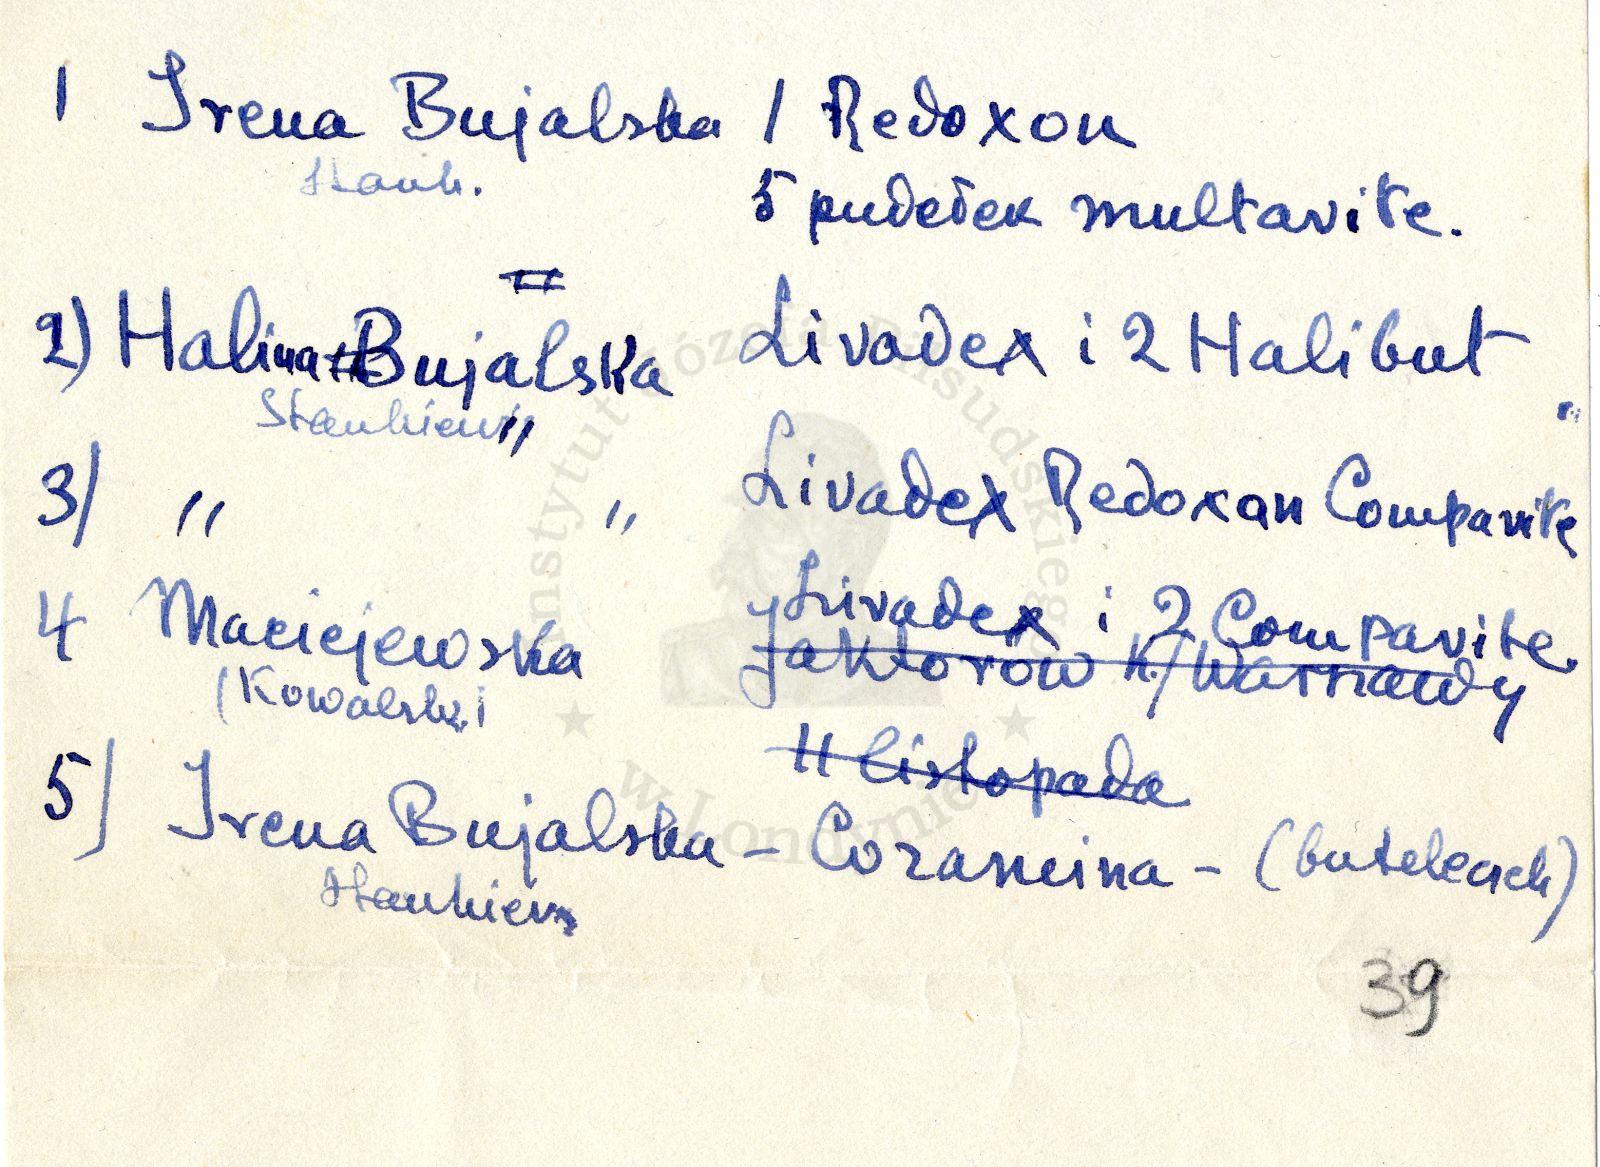 1 Irena Bujalska 1 Redoxon
Stank.
5 pudełek multavite.
2) Halina Bujalska Livadex i 2 Halibut
Stankiew
3) " " Livadex Redoxon Compavite
4 Maciejewska Livadex i 2 Compavite
(Kowalski
Jaktorów k/Warszawy
11 listopada
5) Irena Bujalska - Coramina - (butelecach)
Stankiew
39
Instytut Józefa Piłsudskiego
w Londynie